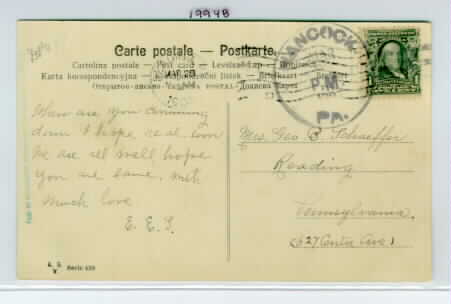 19948
Carte postale — Postkarte.
Cartolina postale — Post card — Levelező-Lap —
Karta korespondencyjna — Korespondenční lístek — Brefkaart —
Открытое письмо
HANCOCK
MAR
P.M.
PA.
MAR 20
When are you comming
down I hope real soon
We are all well hope
you are same. with
much love
E. E. S.
Mrs. Geo B. Schaeffer
Reading
Pennsylvania.
(527 Centre Ave)
Serie 439